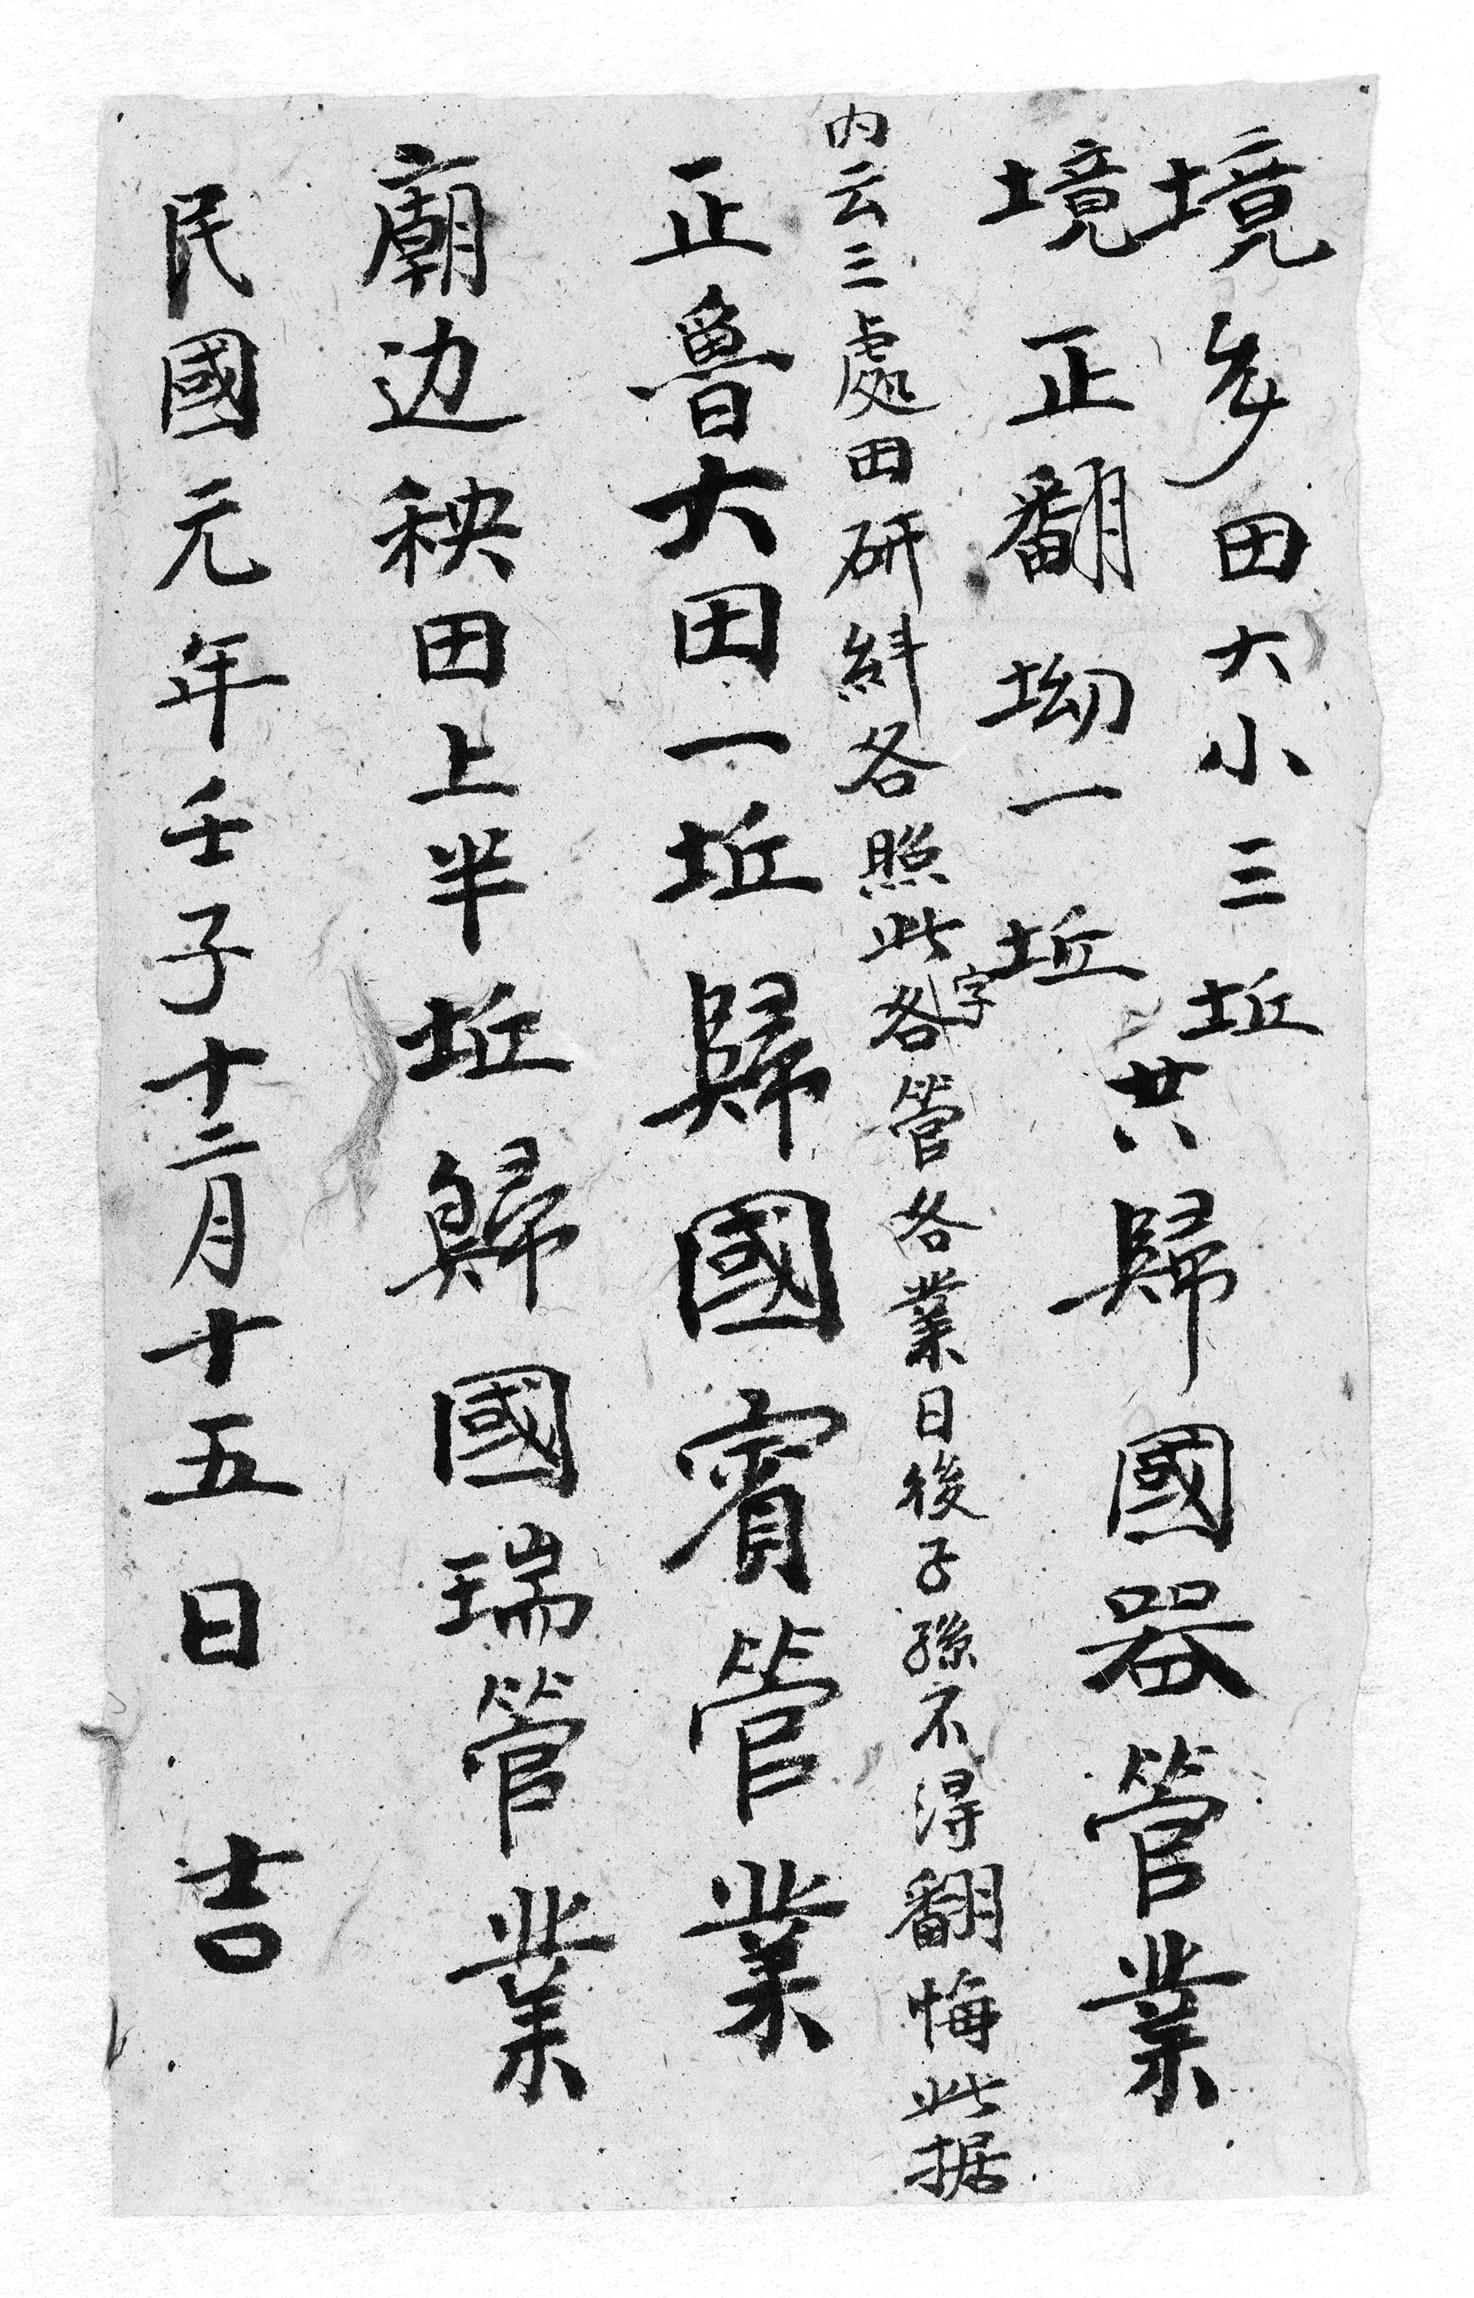 境乡田大小三坵
境正翻坳一坵
共歸國器管業
内云三處田研糾各照此字各管各業日後子孫不得翻悔此据
正魯大田一坵歸國賓管業
廟边秧田上半坵歸國瑞管業
民國元年壬子十二月十五日 吉